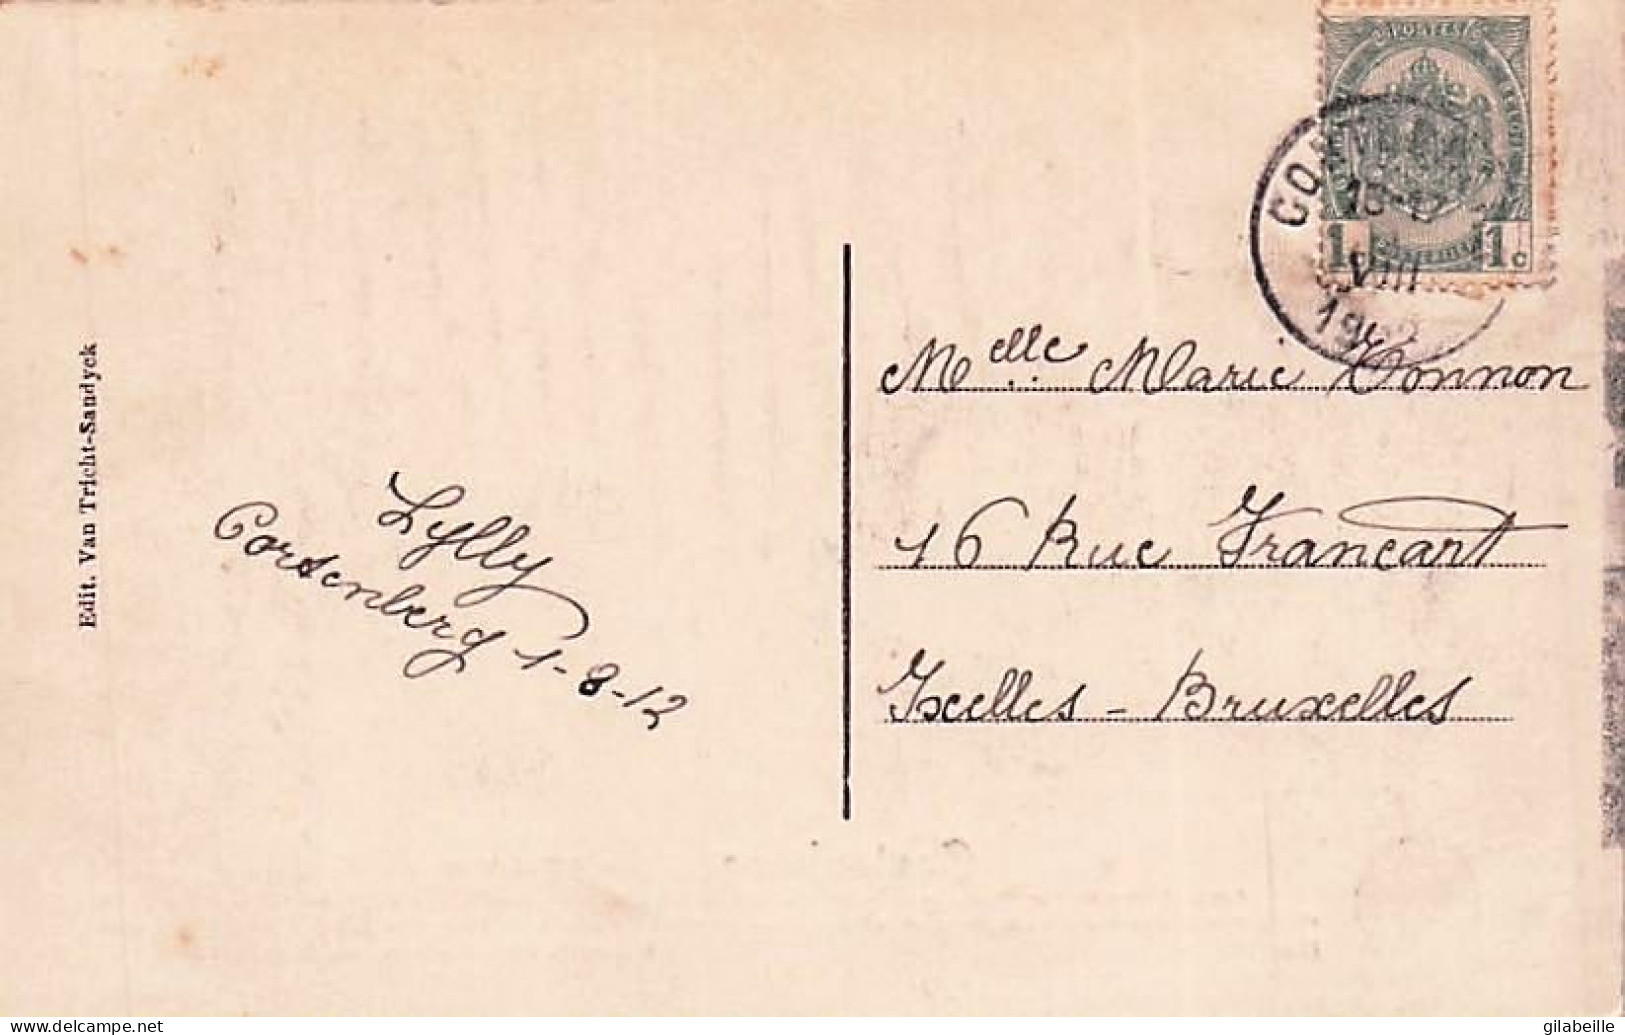 Edit. Van Tricht-Sandyck
Lylly
Cortenberg 1-8-12
POSTES
1c 1c
VIII
Melle Marie Connon
16 Rue Francart
Ixelles - Bruxelles
www.delcampe.net
gilabeille